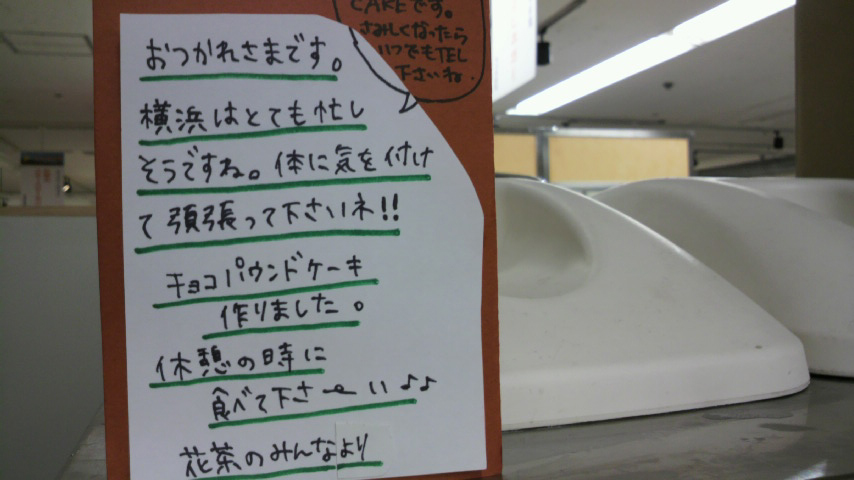 CAKEです。
さみしくなったら
いつでもTEL
下さいね.
おつかれさまです。
横浜はとても忙し
そうですね。体に気を付け
て頑張って下さいネ!!
チョコパウンドケーキ
作りました。
休憩の時に
食べて下さ〜い♪♪
花茶のみんなより